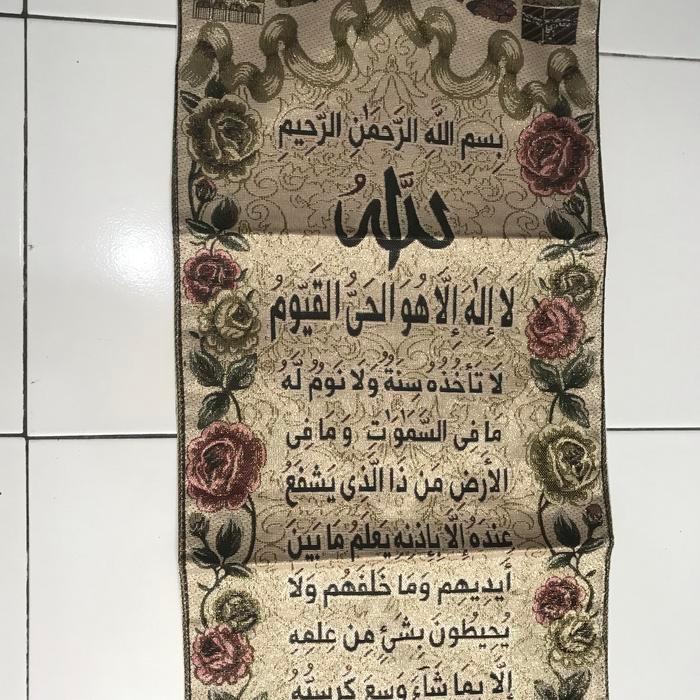 بِسْمِ اللَّهِ الرَّحْمَٰنِ الرَّحِيمِ
اللَّهُ
لَا إِلَٰهَ إِلَّا هُوَ الْحَيُّ الْقَيُّومُ
لَا تَأْخُذُهُ سِنَةٌ وَلَا نَوْمٌ لَهُ
مَا فِى السَّمٰوٰتِ وَمَا فِى
الْأَرْضِ مَنْ ذَا الَّذِى يَشْفَعُ
عِنْدَهُ إِلَّا بِإِذْنِهِ يَعْلَمُ مَا بَيْنَ
أَيْدِيهِمْ وَمَا خَلْفَهُمْ وَلَا
يُحِيطُونَ بِشَىْءٍ مِنْ عِلْمِهِ
إِلَّا بِمَا شَاءَ وَسِعَ كُرْسِيُّهُ